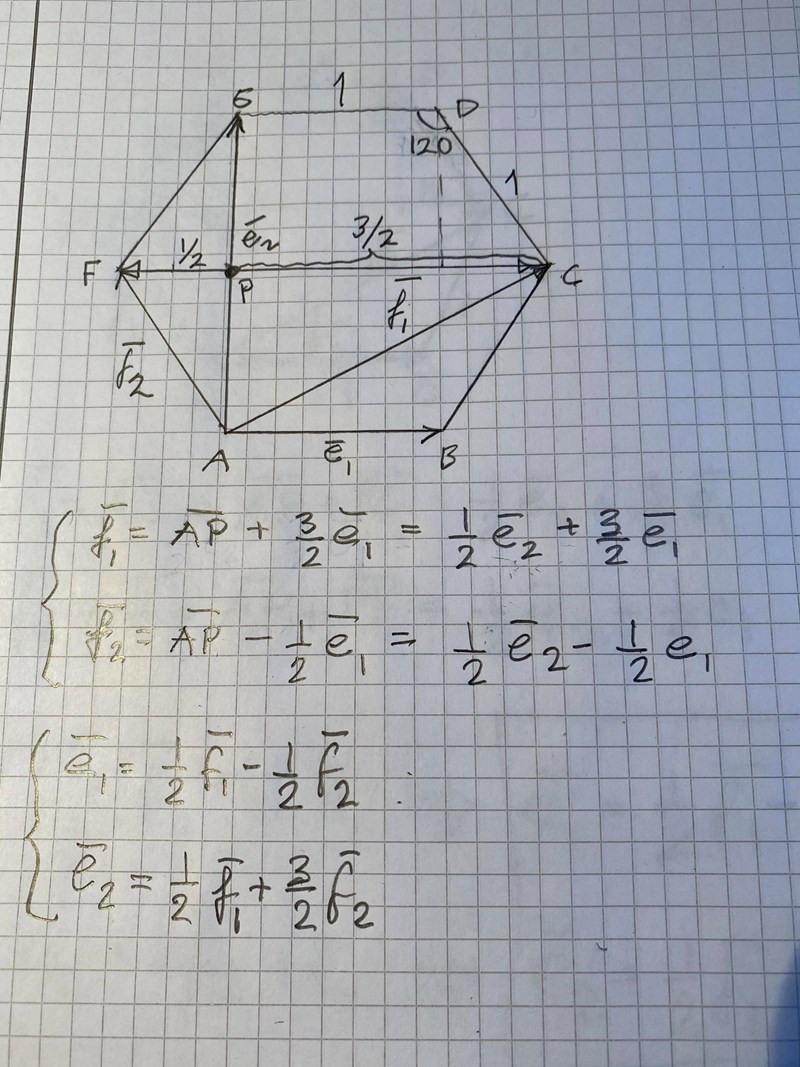 1
E D
120
1
ē₂ 3/2
F 1/2 P C
f̄₁
f̄₂
A ē₁ B
f̄₁ = A̅P̅ + 3/2 ē₁ = 1/2 ē₂ + 3/2 ē₁
f̄₂ = A̅P̅ - 1/2 ē₁ = 1/2 ē₂ - 1/2 e₁
ē₁ = 1/2 f̄₁ - 1/2 f̄₂
ē₂ = 1/2 f̄₁ + 3/2 f̄₂